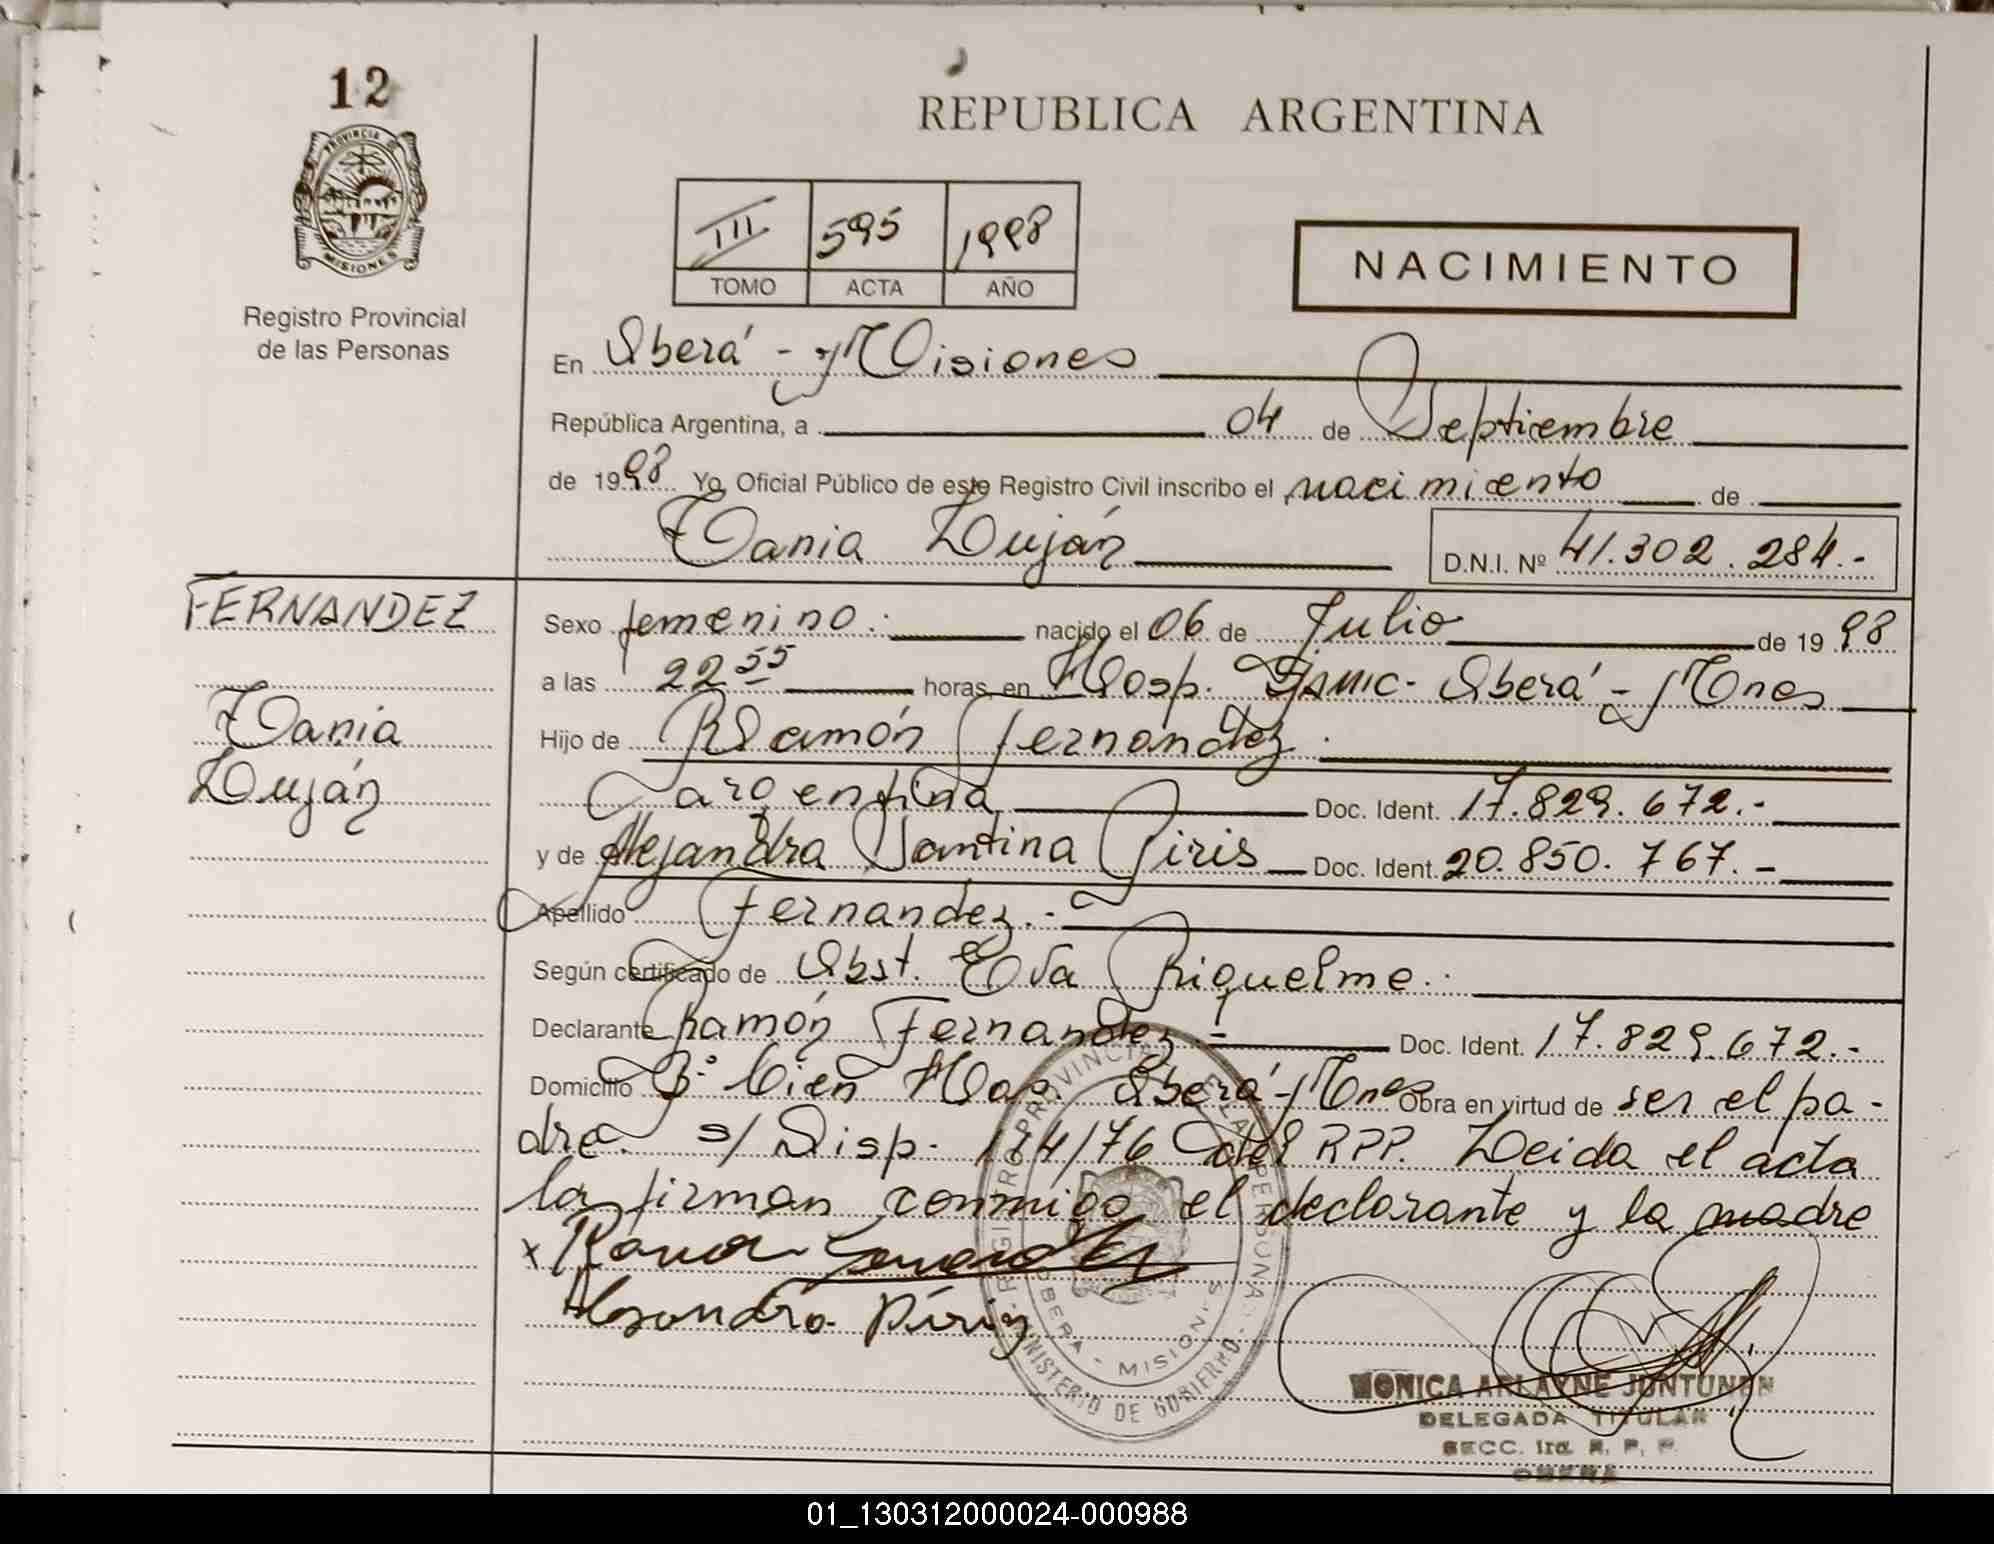 12
PROVINCIA DE
MISIONES
Registro Provincial
de las Personas
REPUBLICA ARGENTINA
III 595 1998
TOMO ACTA AÑO
NACIMIENTO
En Oberá - Misiones
República Argentina, a 04 de Septiembre
de 1998 Yo, Oficial Público de este Registro Civil inscribo el nacimiento de
Tania Luján D.N.I. Nº 41.302.284.-
FERNANDEZ
Tania
Luján
Sexo femenino.- nacido el 06 de Julio de 1998
a las 22 55 horas, en Hosp. Oberá - Mnes
Hijo de Ramón Fernández
argentina Doc. Ident. 17.829.672.-
y de Alejandra Santina Piris Doc. Ident. 20.850.767.-
Apellido Fernández.-
Según certificado de Obst. Eva Riquelme.
Declarante Ramón Fernandez.- Doc. Ident. 17.829.672.-
Domicilio Bº Cien Has. Oberá - Mnes Obra en virtud de ser el pa-
dre. s/ Disp. 174/76 del RPP. Leida el acta
la firman conmigo el declarante y la madre
x Ramon Fernandez
Alejandra Piriz
REGISTRO PROVINCIAL DE LAS PERSONAS
OBERA - MISIONES
MINISTERIO DE GOBIERNO
MONICA ARLAYNE JUNTUNEN
DELEGADA TITULAR
SECC. 1ra. R. P. P.
OBERA
01_130312000024-000988